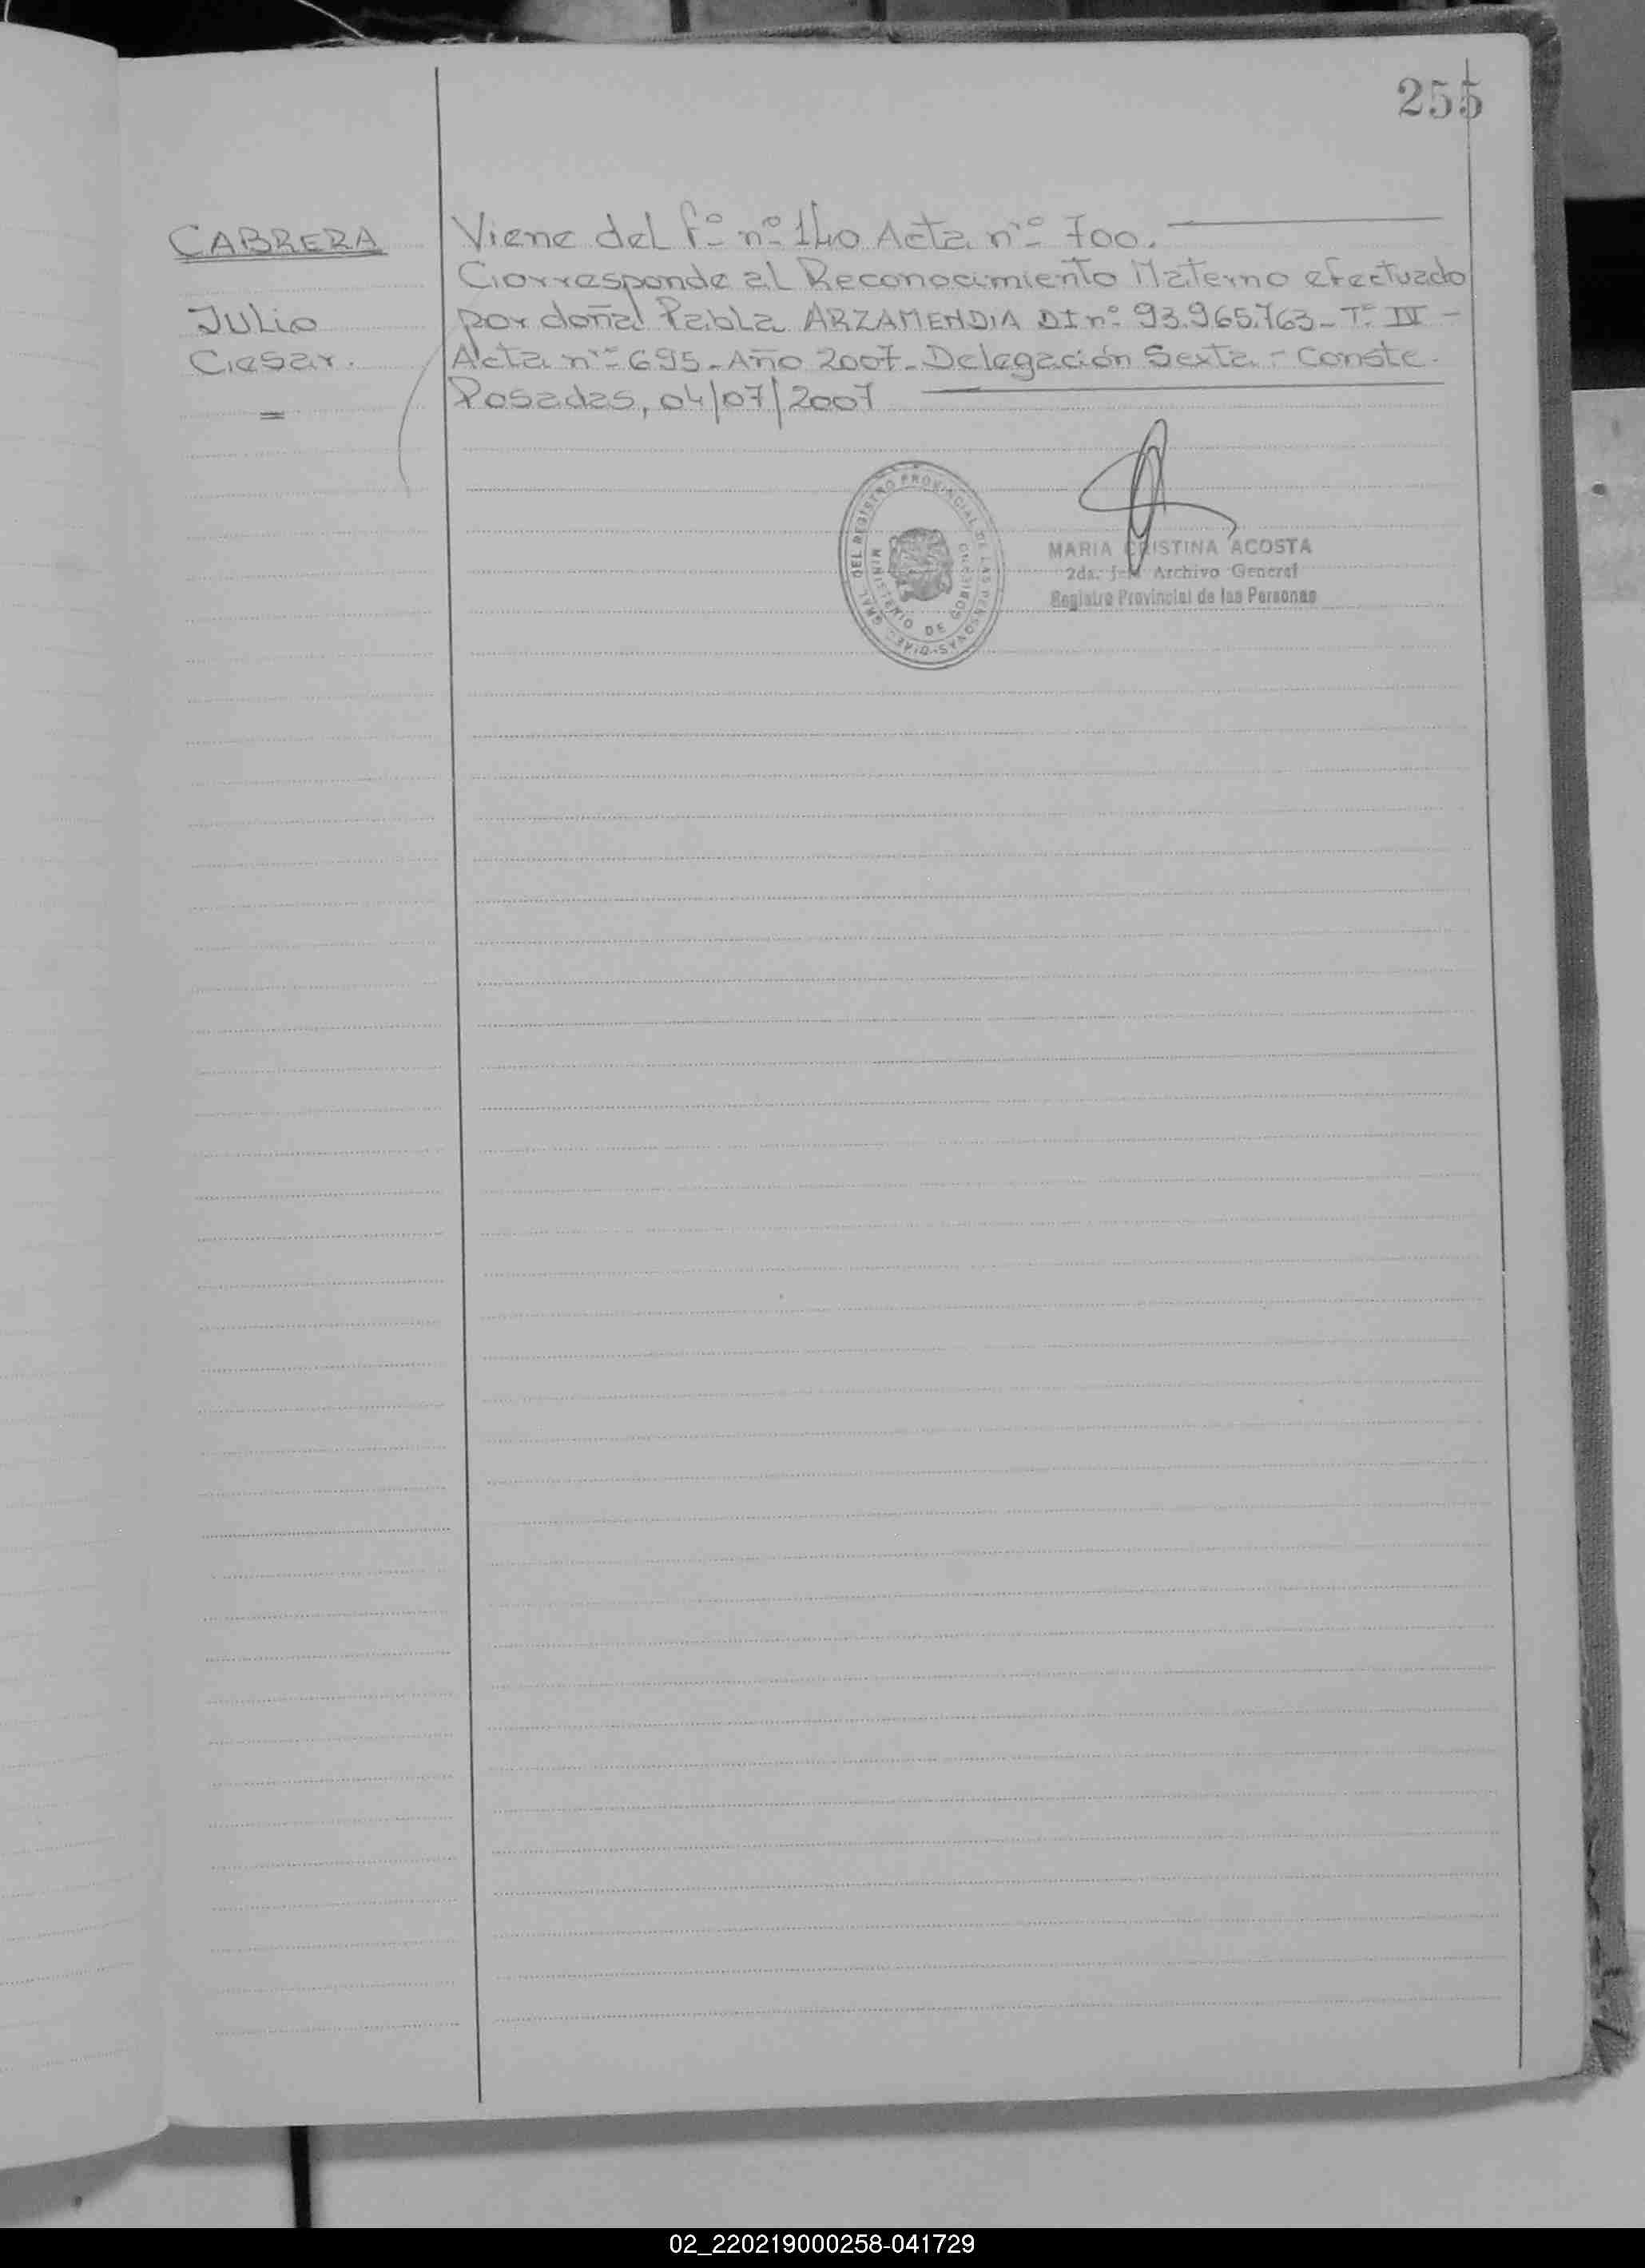 255
CABRERA
Julio
Cesar.
=
Viene del fº nº 140 Acta nº 700.
Corresponde al Reconocimiento Materno efectuado
por doña Pabla ARZAMENDIA DI nº 93.965.763 - Tº IV -
Acta nº 695 - Año 2007 - Delegación Sexta - Conste.
Posadas, 04/07/2007
GRAL. DEL REGISTRO PROVINCIAL DE LAS PERSONAS
MINISTERIO DE GOBIERNO
MARIA CRISTINA ACOSTA
2da. Jefa Archivo General
Registro Provincial de las Personas
02_220219000258-041729